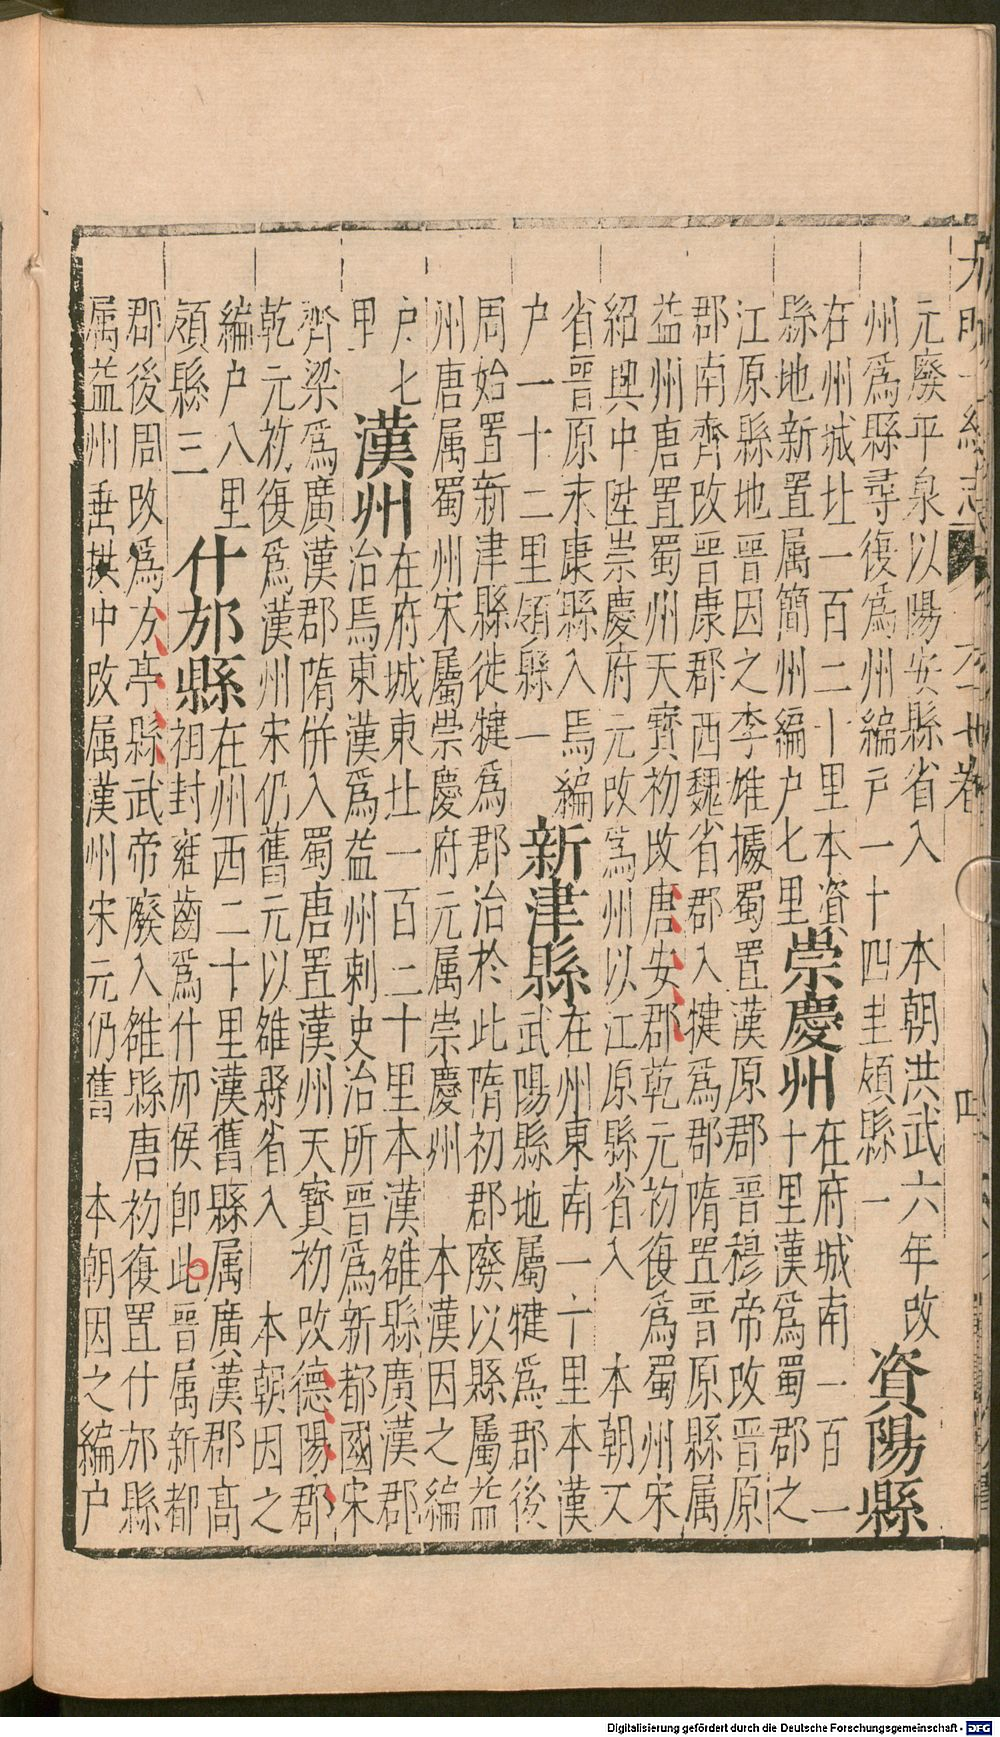 大明一統志 六十七卷 四
元廢平泉以陽安縣省入 本朝洪武六年改
州爲縣尋復爲州編戸一十四里領縣一
資陽縣
在州城北一百二十里本資
縣地新置属簡州編户七里
崇慶州
在府城南一百一
十里漢爲蜀郡之
江原縣地晉因之李雄據蜀置漢原郡晉穆帝改晉原
郡南齊改晉康郡西魏省郡入犍爲郡隋置晉原縣属
益州唐置蜀州天寳初改唐安郡乾元初復爲蜀州宋
紹興中陞崇慶府元改爲州以江原縣省入 本朝又
省晉原永康縣入焉編
户一十二里領縣一
新津縣
在州東南一十里本漢
武陽縣地屬犍爲郡後
周始置新津縣徙犍爲郡治於此隋初郡廢以縣屬益
州唐属蜀州宋屬崇慶府元属崇慶州 本漢因之編
户七
里
漢州
在府城東北一百二十里本漢雒縣廣漢郡
治焉東漢爲益州刺史治所晉爲新都國宋
齊梁爲廣漢郡隋併入蜀唐置漢州天寳初改德陽郡
乾元初復爲漢州宋仍舊元以雒縣省入 本朝因之
編户八里
領縣三
什邡縣
在州西二十里漢舊縣属廣漢郡高
祖封雍齒爲什邡侯即此晉属新都
郡後周改爲方亭縣武帝廢入雒縣唐初復置什邡縣
属益州垂拱中改属漢州宋元仍舊 本朝因之編户
Digitalisierung gefördert durch die Deutsche Forschungsgemeinschaft - DFG